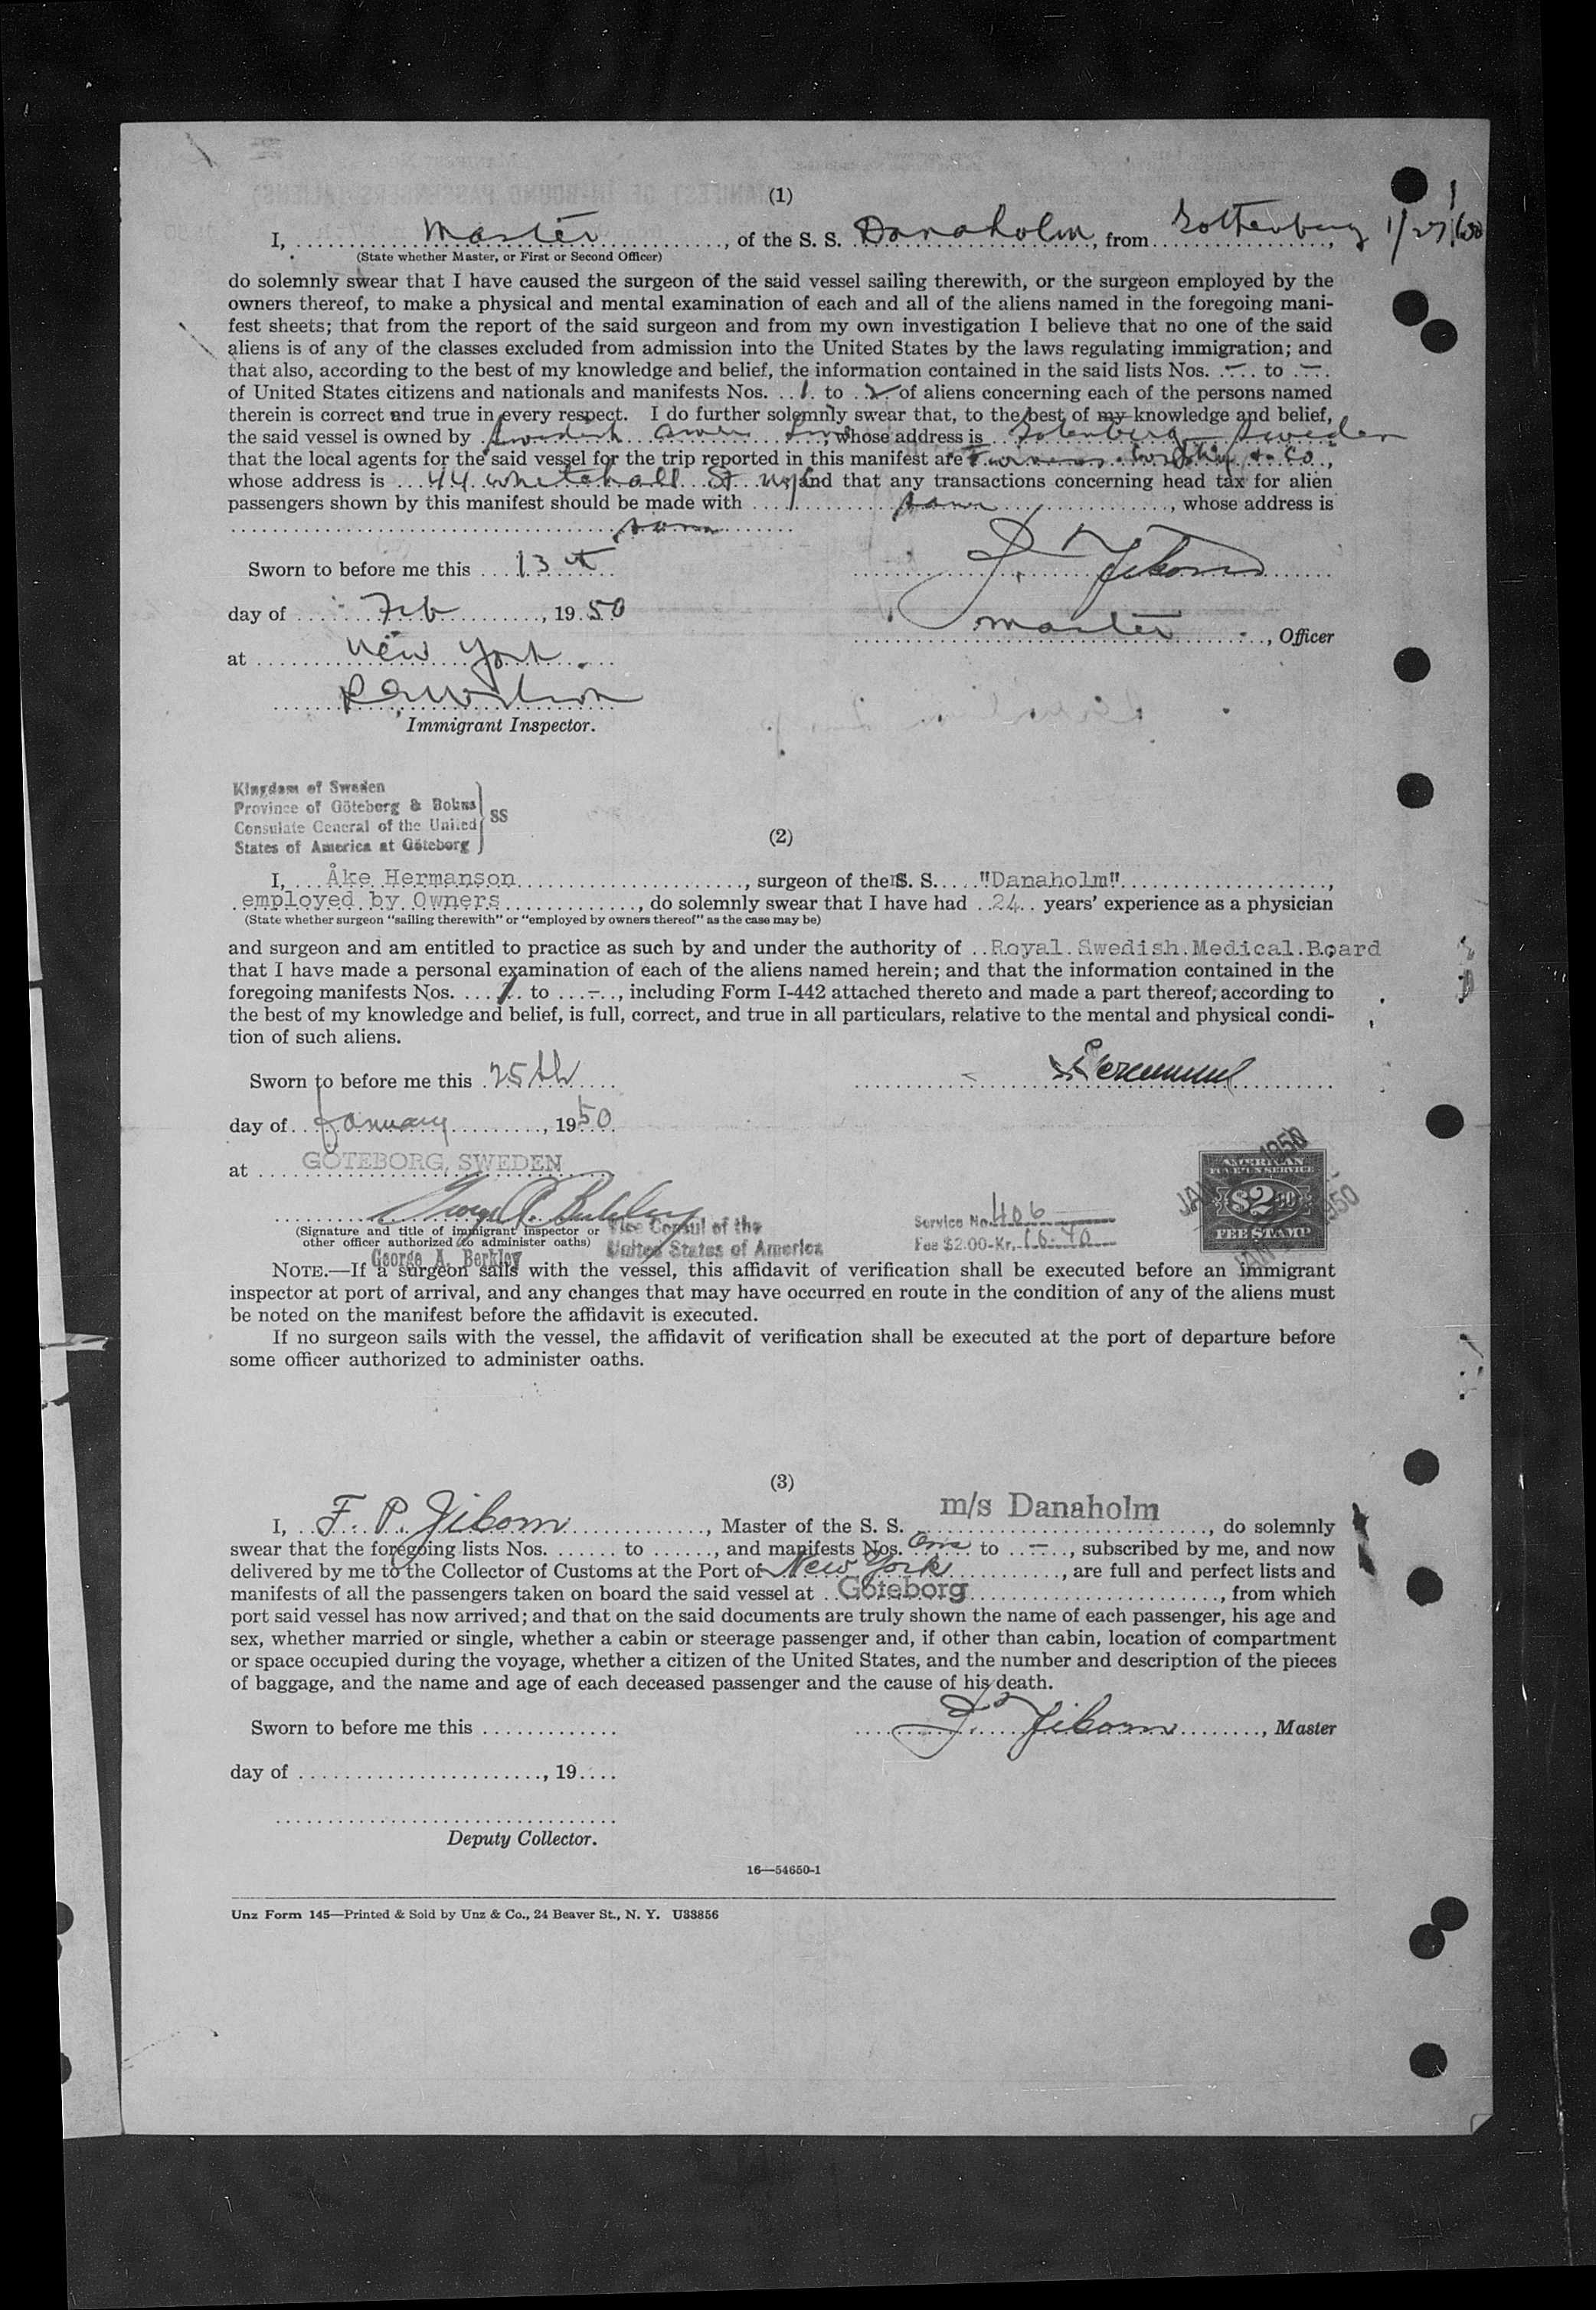 (1)
I, Master, of the S. S. Danaholm, from Gothenburg, 1/27/50
(State whether Master, or First or Second Officer)
do solemnly swear that I have caused the surgeon of the said vessel sailing therewith, or the surgeon employed by the
owners thereof, to make a physical and mental examination of each and all of the aliens named in the foregoing mani-
fest sheets; that from the report of the said surgeon and from my own investigation I believe that no one of the said
aliens is of any of the classes excluded from admission into the United States by the laws regulating immigration; and
that also, according to the best of my knowledge and belief, the information contained in the said lists Nos. — to —
of United States citizens and nationals and manifests Nos. 1 to 2 of aliens concerning each of the persons named
therein is correct and true in every respect. I do further solemnly swear that, to the best of my knowledge and belief,
the said vessel is owned by Swedish Amer Line, whose address is Gotenberg Sweden
that the local agents for the said vessel for the trip reported in this manifest are Furness & Co,
whose address is 44 Whitehall St. NYC and that any transactions concerning head tax for alien
passengers shown by this manifest should be made with same, whose address is
same
Sworn to before me this 13th
day of Feb, 1950
Master, Officer
at New York
Immigrant Inspector.
Kingdom of Sweden
Province of Göteborg & Bohus
Consulate General of the United SS
States of America at Göteborg
(2)
I, Åke Hermanson, surgeon of the S. S. "Danaholm",
employed by Owners, do solemnly swear that I have had 24 years' experience as a physician
(State whether surgeon "sailing therewith" or "employed by owners thereof" as the case may be)
and surgeon and am entitled to practice as such by and under the authority of Royal Swedish Medical Board
that I have made a personal examination of each of the aliens named herein; and that the information contained in the
foregoing manifests Nos. 1 to —, including Form I-442 attached thereto and made a part thereof, according to
the best of my knowledge and belief, is full, correct, and true in all particulars, relative to the mental and physical condi-
tion of such aliens.
Sworn to before me this 25th
day of January, 1950
at GÖTEBORG, SWEDEN
AMERICAN
FOREIGN SERVICE
$2.00
FEE STAMP
George A. Berkley
(Signature and title of immigrant inspector or
other officer authorized to administer oaths)
Vice Consul of the
United States of America
Service No. 406
Fee $2.00-Kr. 
George A. Berkley
NOTE.—If a surgeon sails with the vessel, this affidavit of verification shall be executed before an immigrant
inspector at port of arrival, and any changes that may have occurred en route in the condition of any of the aliens must
be noted on the manifest before the affidavit is executed.
If no surgeon sails with the vessel, the affidavit of verification shall be executed at the port of departure before
some officer authorized to administer oaths.
(3)
I, F. P. Jibom, Master of the S. S. m/s Danaholm, do solemnly
swear that the foregoing lists Nos. to , and manifests Nos. One to —, subscribed by me, and now
delivered by me to the Collector of Customs at the Port of New York, are full and perfect lists and
manifests of all the passengers taken on board the said vessel at Göteborg, from which
port said vessel has now arrived; and that on the said documents are truly shown the name of each passenger, his age and
sex, whether married or single, whether a cabin or steerage passenger and, if other than cabin, location of compartment
or space occupied during the voyage, whether a citizen of the United States, and the number and description of the pieces
of baggage, and the name and age of each deceased passenger and the cause of his death.
Sworn to before me this
F. Jibom, Master
day of , 19
Deputy Collector.
16—54650-1
Unz Form 145—Printed & Sold by Unz & Co., 24 Beaver St., N. Y. U33856